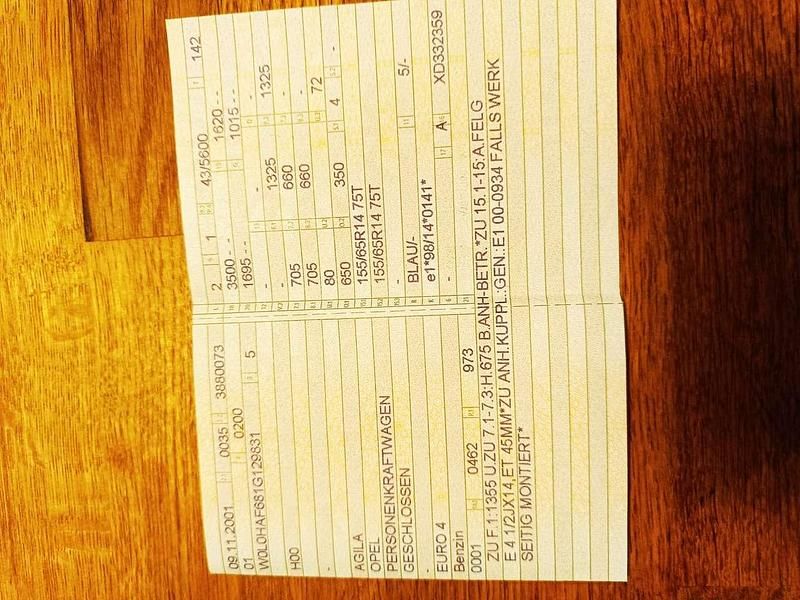 09.11.2001 0035 3880073
01 0200 5
W0L0HAF681G129831
H00
-
AGILA
OPEL
PERSONENKRAFTWAGEN
GESCHLOSSEN
-
EURO 4
Benzin
0001 0462 973
2 1 43/5600 142
3500 - - 1620 - -
1695 - - 1015 - -
- -
1325 1325
705 660
705 660
80 - 72
650 350 4 -
155/65R14 75T
155/65R14 75T
-
BLAU/- 5/-
e1*98/14*0141*
- A XD332359
ZU F.1:1355 U.ZU 7.1-7.3:H.675 B.ANH-BETR.*ZU 15.1-15:A.FELG
E 4 1/2JX14,ET 45MM*ZU ANH.KUPPL.:GEN.:E1 00-0934 FALLS WERK
SEITIG MONTIERT*